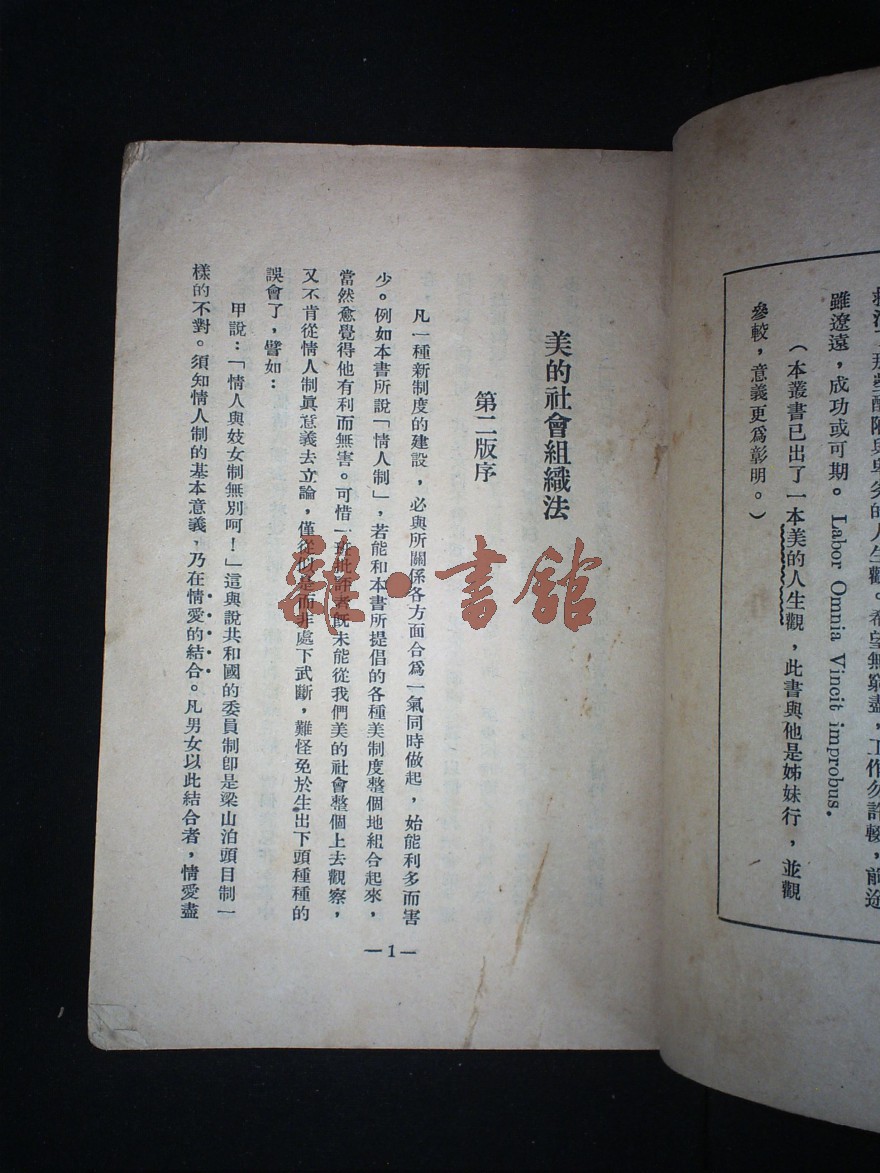 雖遼遠，成功或可期。Labor Omnia Vincit improbus.
（本叢書已出了一本美的人生觀，此書與他是姊妹行，並觀
參較，意義更爲彰明。）
美的社會組織法
第二版序
凡一種新制度的建設，必與所關係各方面合爲一氣同時做起，始能利多而害
少。例如本書所說「情人制」，若能和本書所提倡的各種美制度整個地組合起來，
當然愈覺得他有利而無害。可惜一班批評者旣未能從我們美的社會整個上去觀察，
又不肯從情人制眞意義去立論，僅從似是而非處下武斷，難怪免於生出下頭種種的
誤會了，譬如：
甲說：「情人與妓女制無別呵！」這與說共和國的委員制卽是梁山泊頭目制一
樣的不對。須知情人制的基本意義，乃在情愛的結合。凡男女以此結合者，情愛盡
—1—
雜·書館